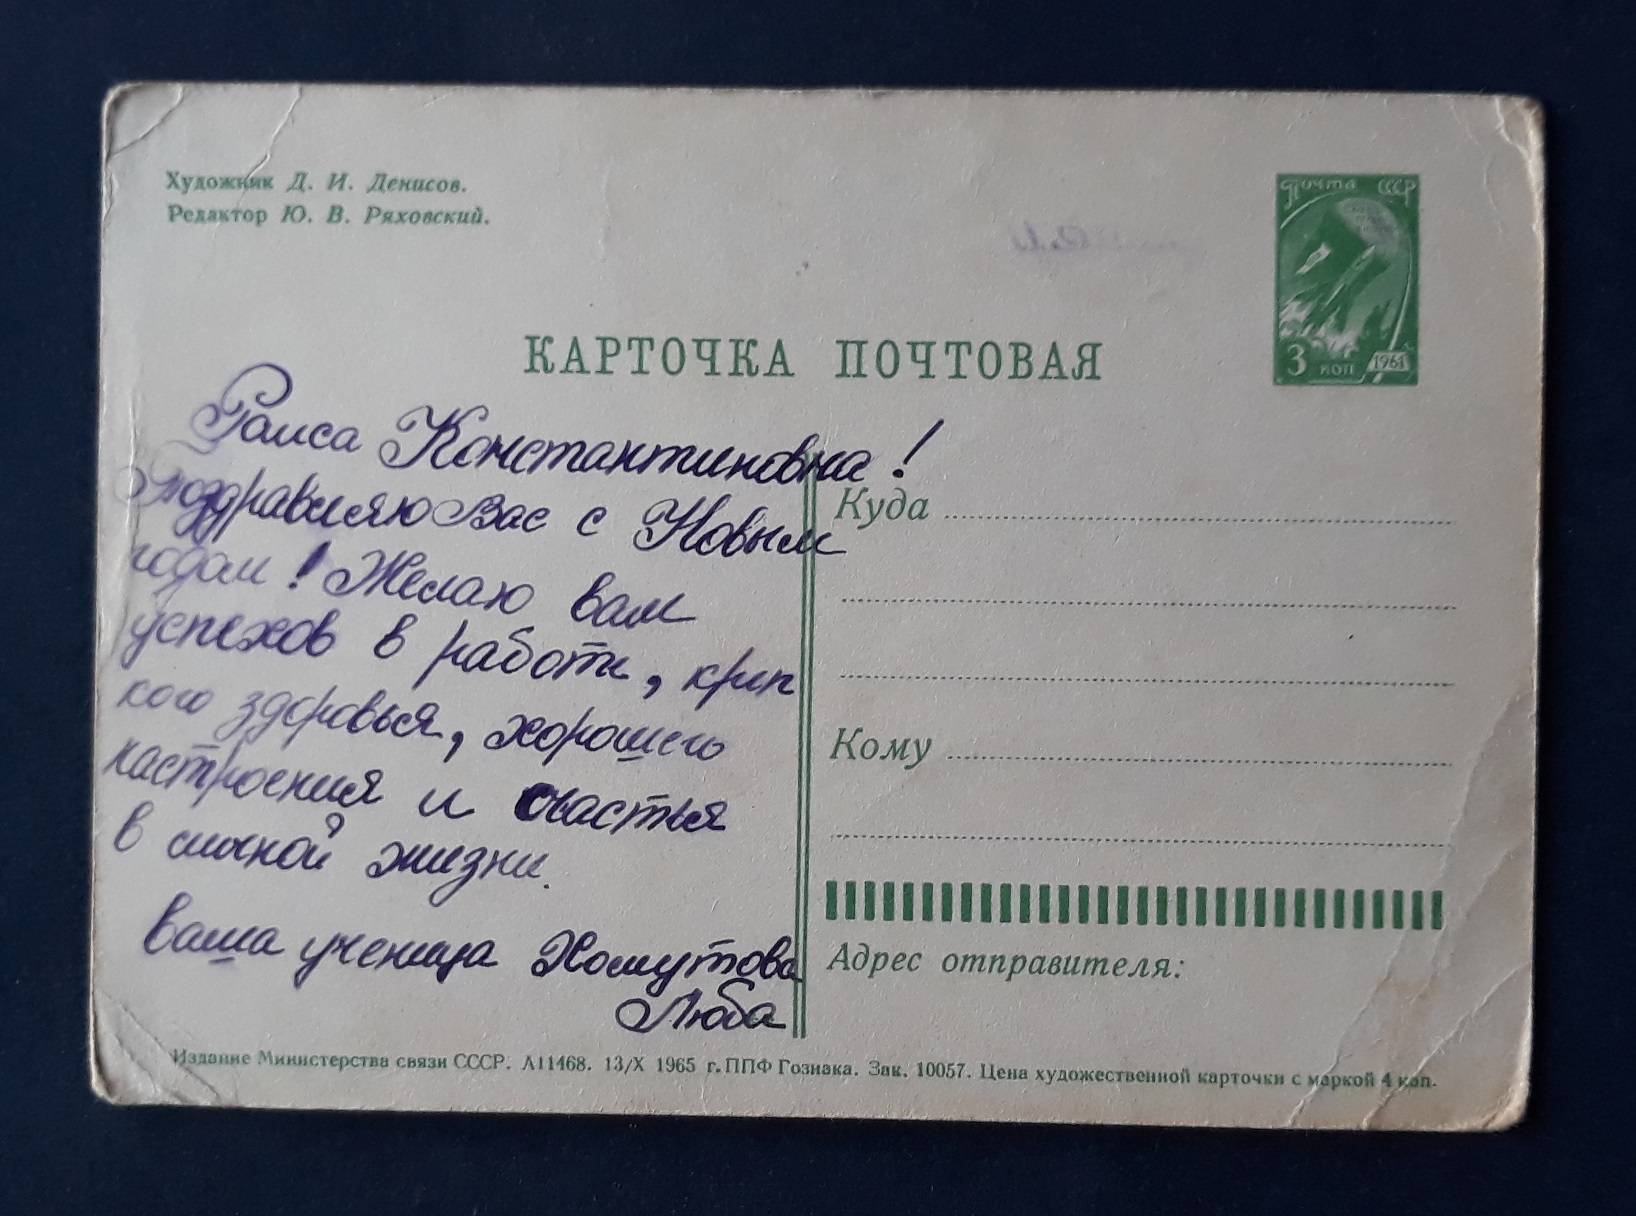 Художник Д. И. Денисов.
Редактор Ю. В. Ряховский.
Почта СССР
3 коп 1961
КАРТОЧКА ПОЧТОВАЯ
Раиса Константиновна!
Поздравляю Вас с Новым
годом! Желаю вам
успехов в работе, креп
кого здоровья, хорошего
настроения и счастья
в личной жизни.
Ваша ученица Хомутова
Люба
Куда
Кому
Адрес отправителя:
Издание Министерства связи СССР. А11468. 13/X 1965 г. ППФ Гознака. Зак. 10057. Цена художественной карточки с маркой 4 коп.